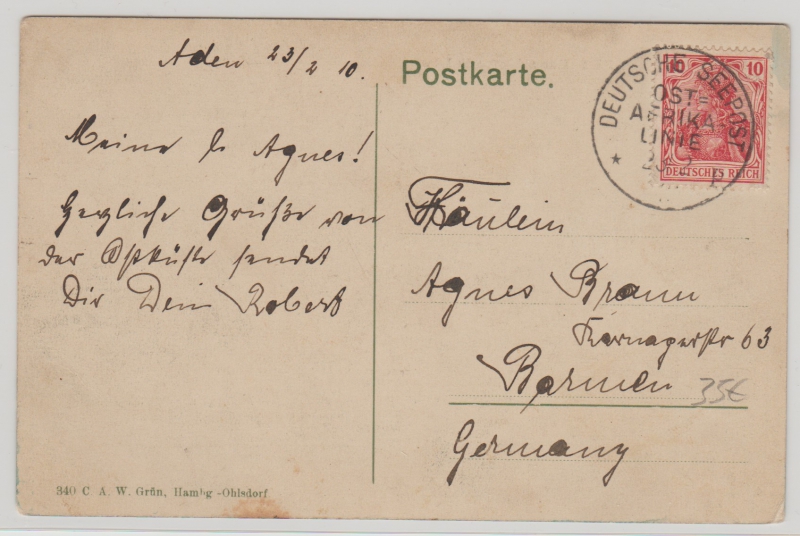 Aden 23/2 10.
Meine l. Agnes!
Herzliche Grüße von
der Ostküste sendet
Dir Dein Robert
340 C. A. W. Grün, Hambg.-Ohlsdorf
Postkarte.
10 10
DEUTSCHES REICH
DEUTSCHE SEEPOST
OST=
AFRIKA
LINIE
Fräulein
Agnes Braun
63
Barmen
35€
Germany